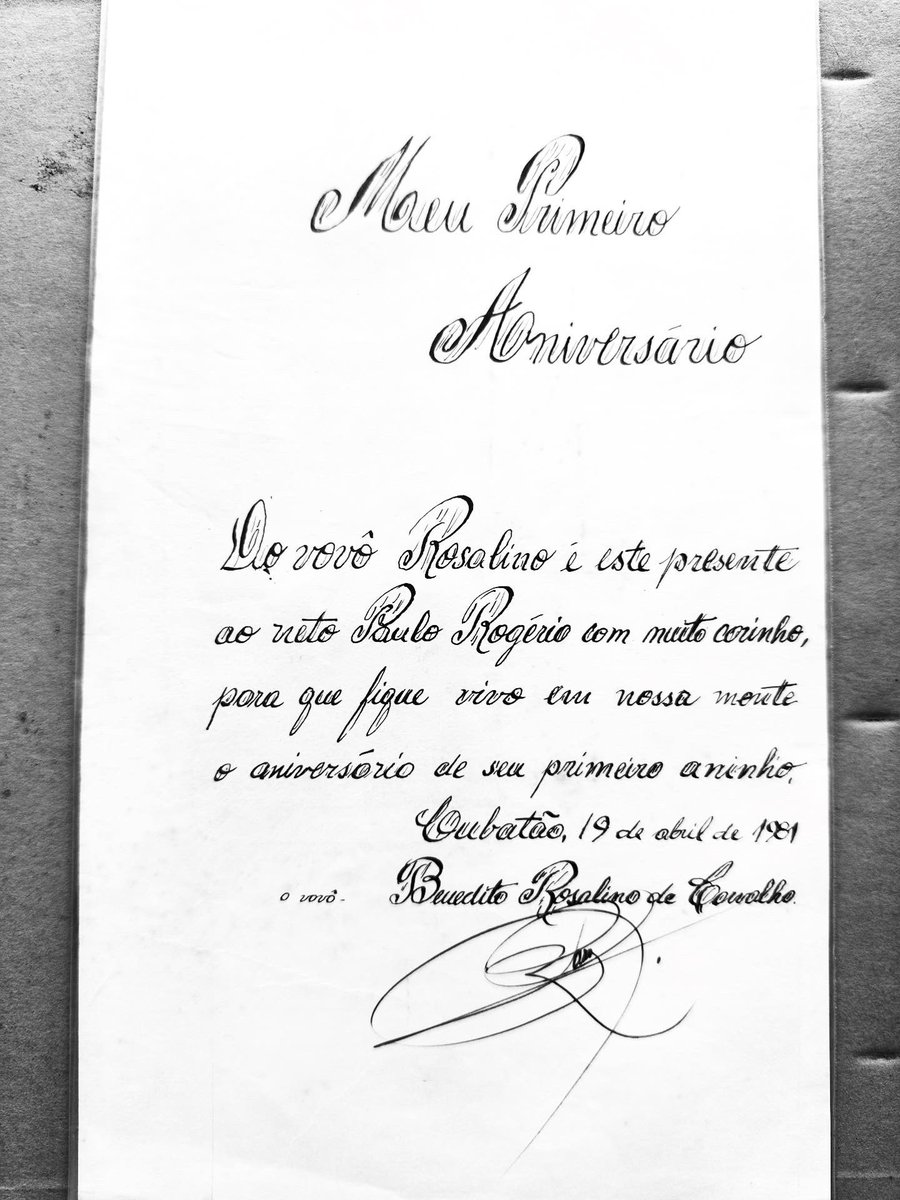 Meu Primeiro
Aniversário
Do vovô Rosalino é este presente
ao neto Paulo Rogério com muito carinho,
para que fique vivo em nossa mente
o aniversário de seu primeiro aninho.
Cubatão, 19 de abril de 1981
o vovô - Benedito Rosalino de Carvalho.